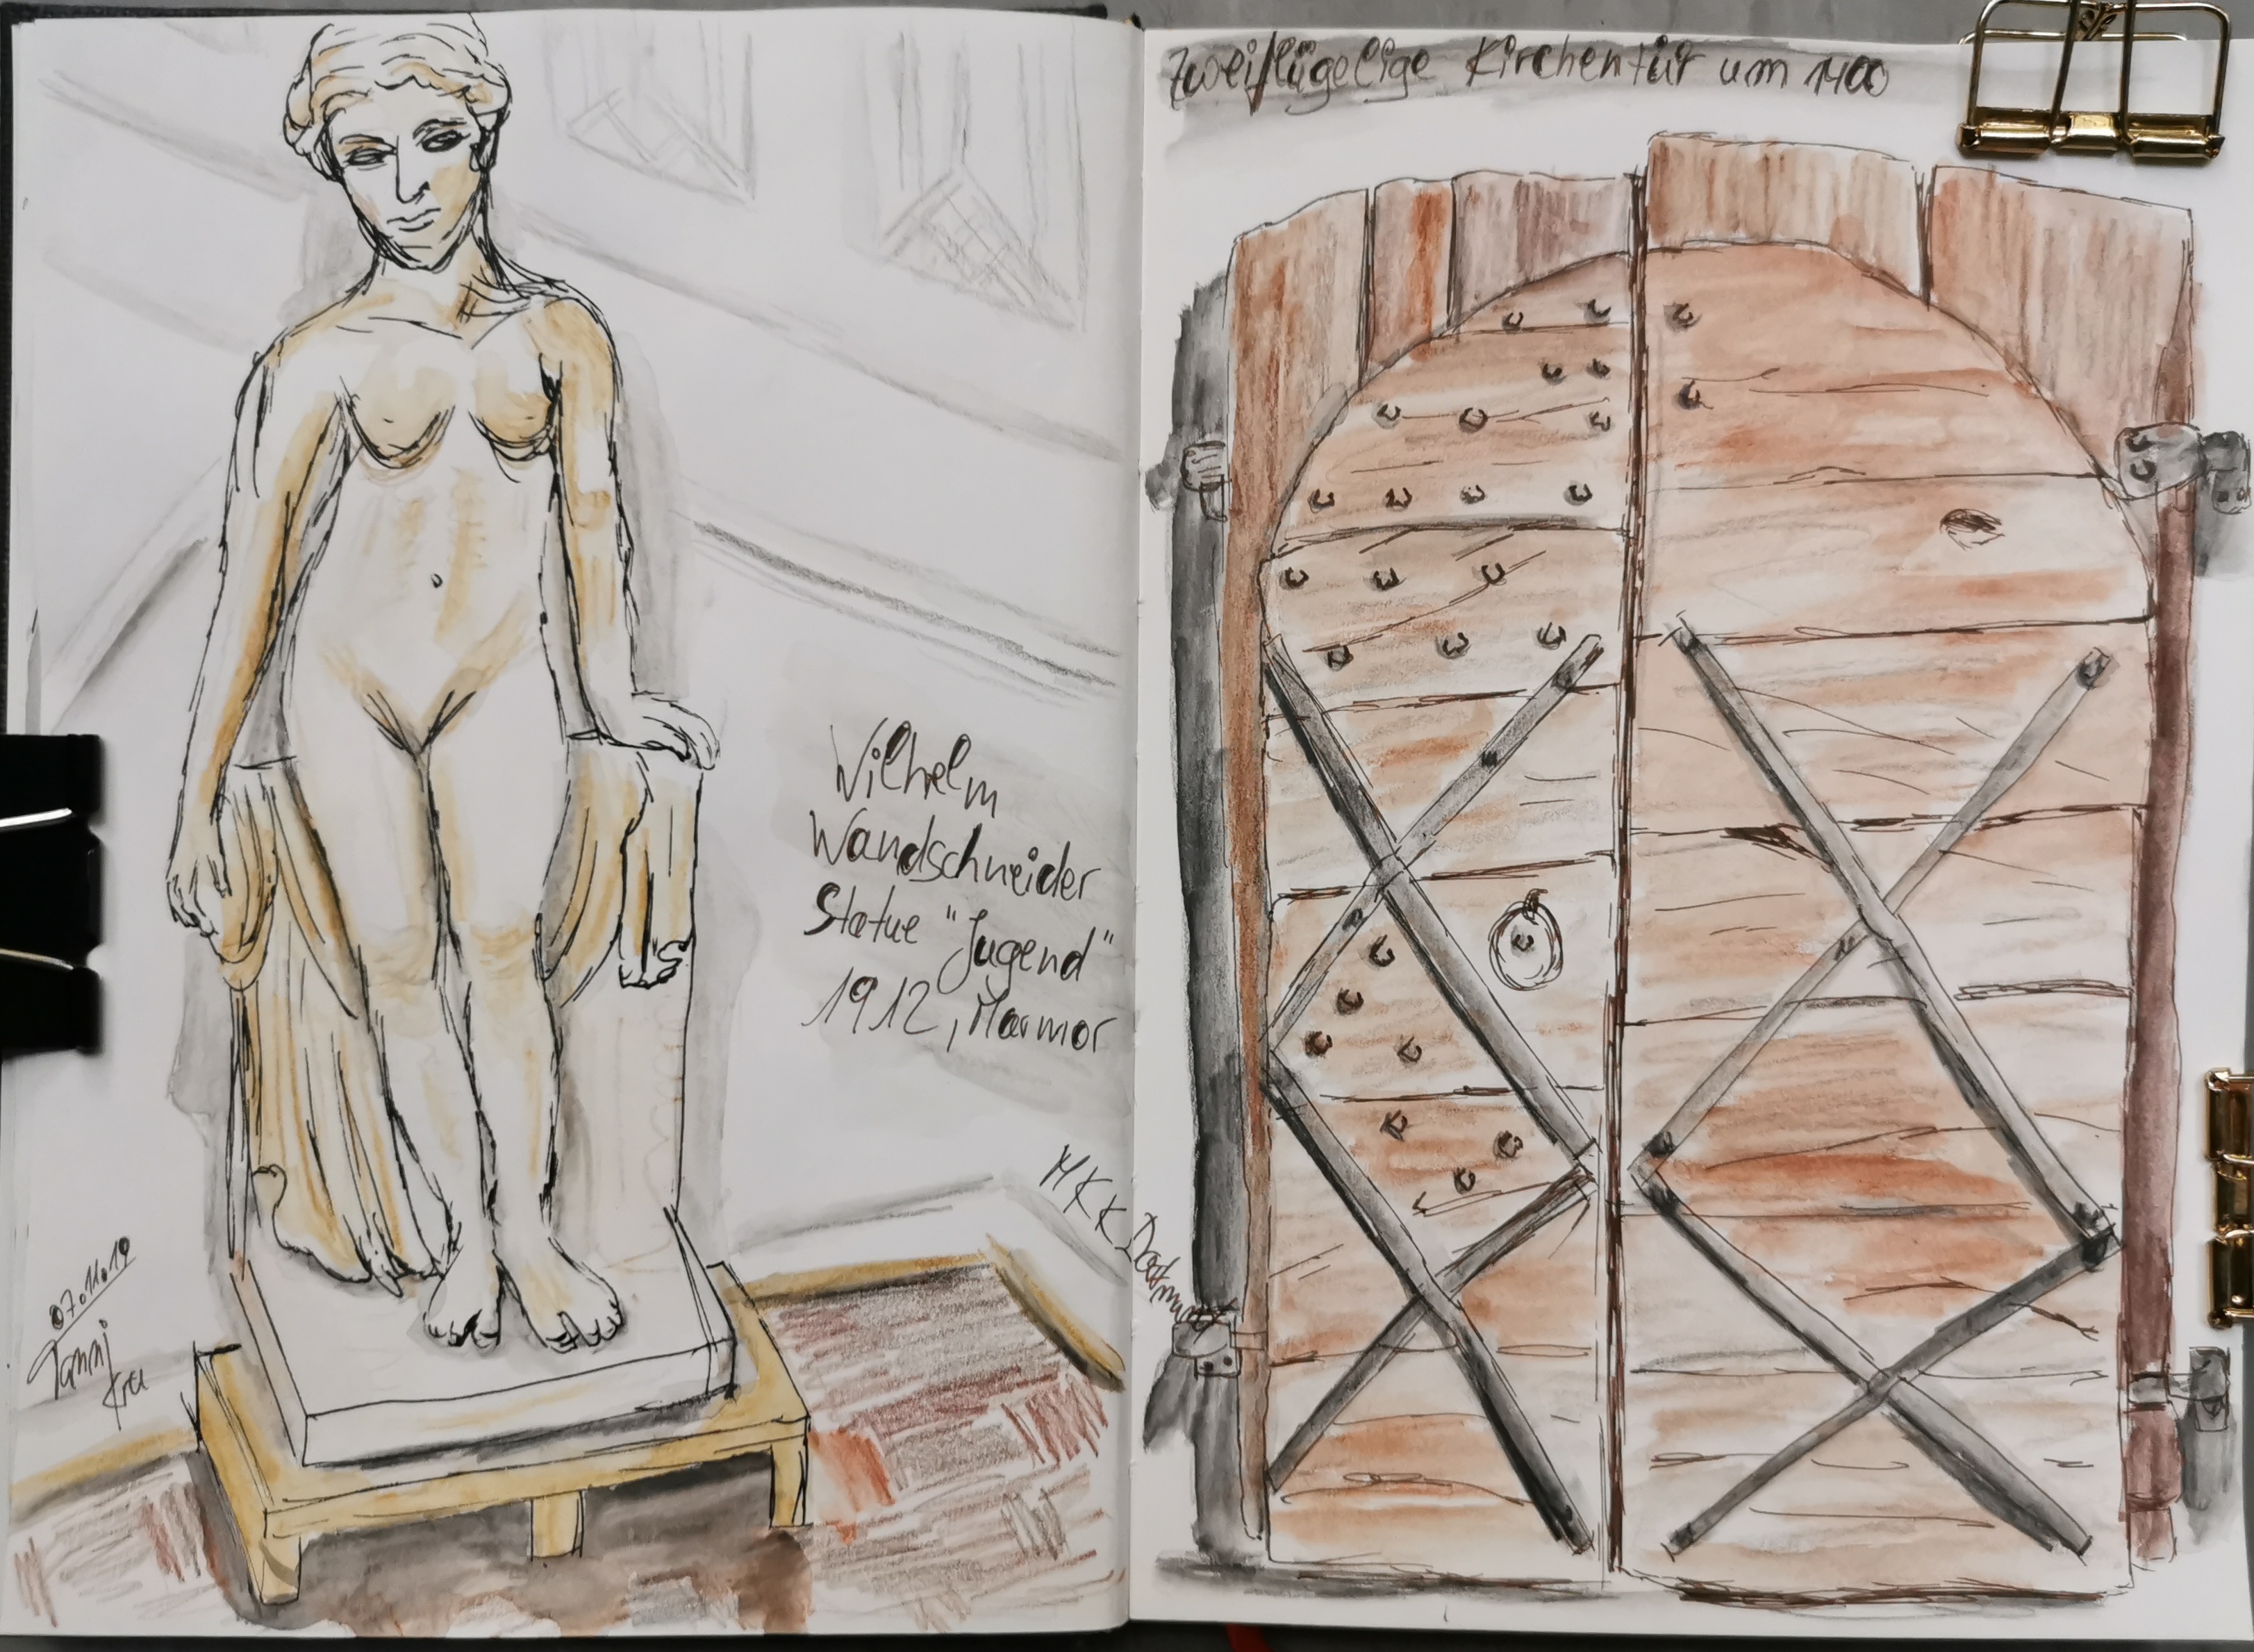 Wilhelm
Wandschneider
Statue "Jugend"
1912, Marmor
MKK Dortmund
07.11.19
Zweiflügelige Kirchentür um 1400